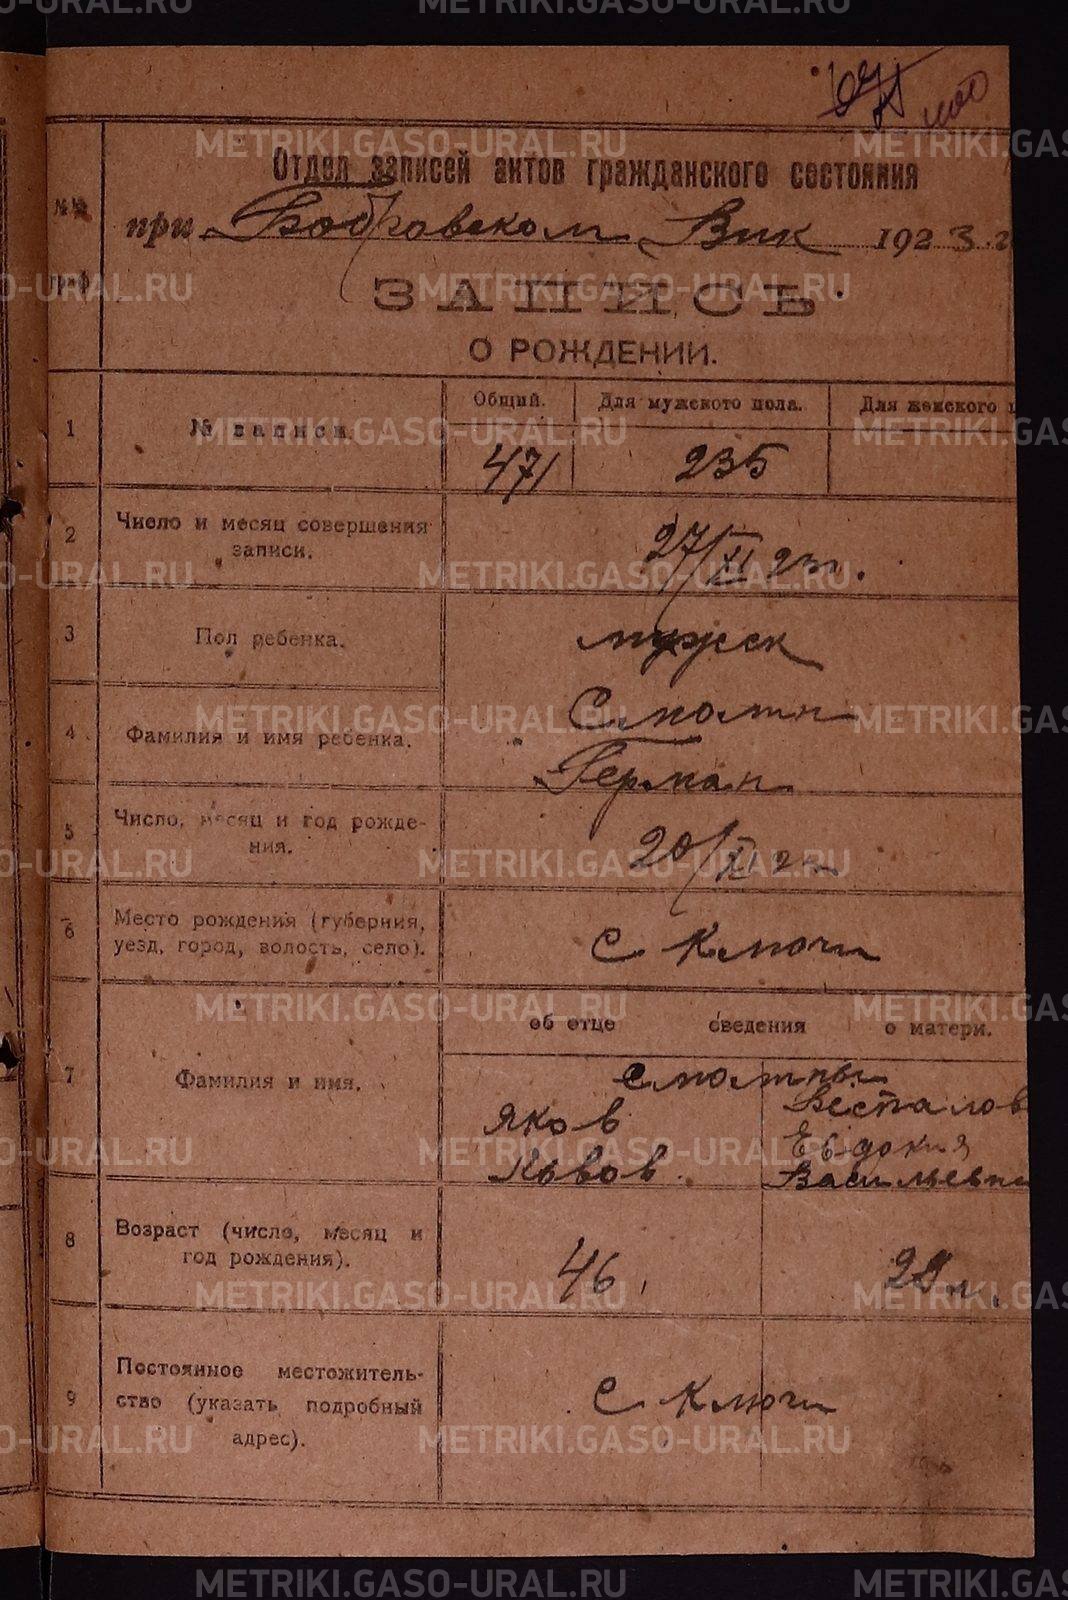 Отдел записей актов гражданского состояния
№№
при Бобровском Вик 1923 г
граф
ЗАПИСЬ
О РОЖДЕНИИ.
1
№ записи.
Общий.
Для мужского пола.
Для женского п
471
235
2
Число и месяц совершения
записи.
27/XI 23г.
3
Пол ребенка.
мужск
4
Фамилия и имя ребенка.
Герман
5
Число, месяц и год рожде-
ния.
20/XI
6
Место рождения (губерния,
уезд, город, волость, село).
с Ключи
об отце сведения о матери.
7
Фамилия и имя.
Яков
Евдокия
Васильевн
8
Возраст (число, месяц и
год рождения).
46
9
Постоянное местожитель-
ство (указать подробный
адрес).
с Ключи
METRIKI.GASO-URAL.RU